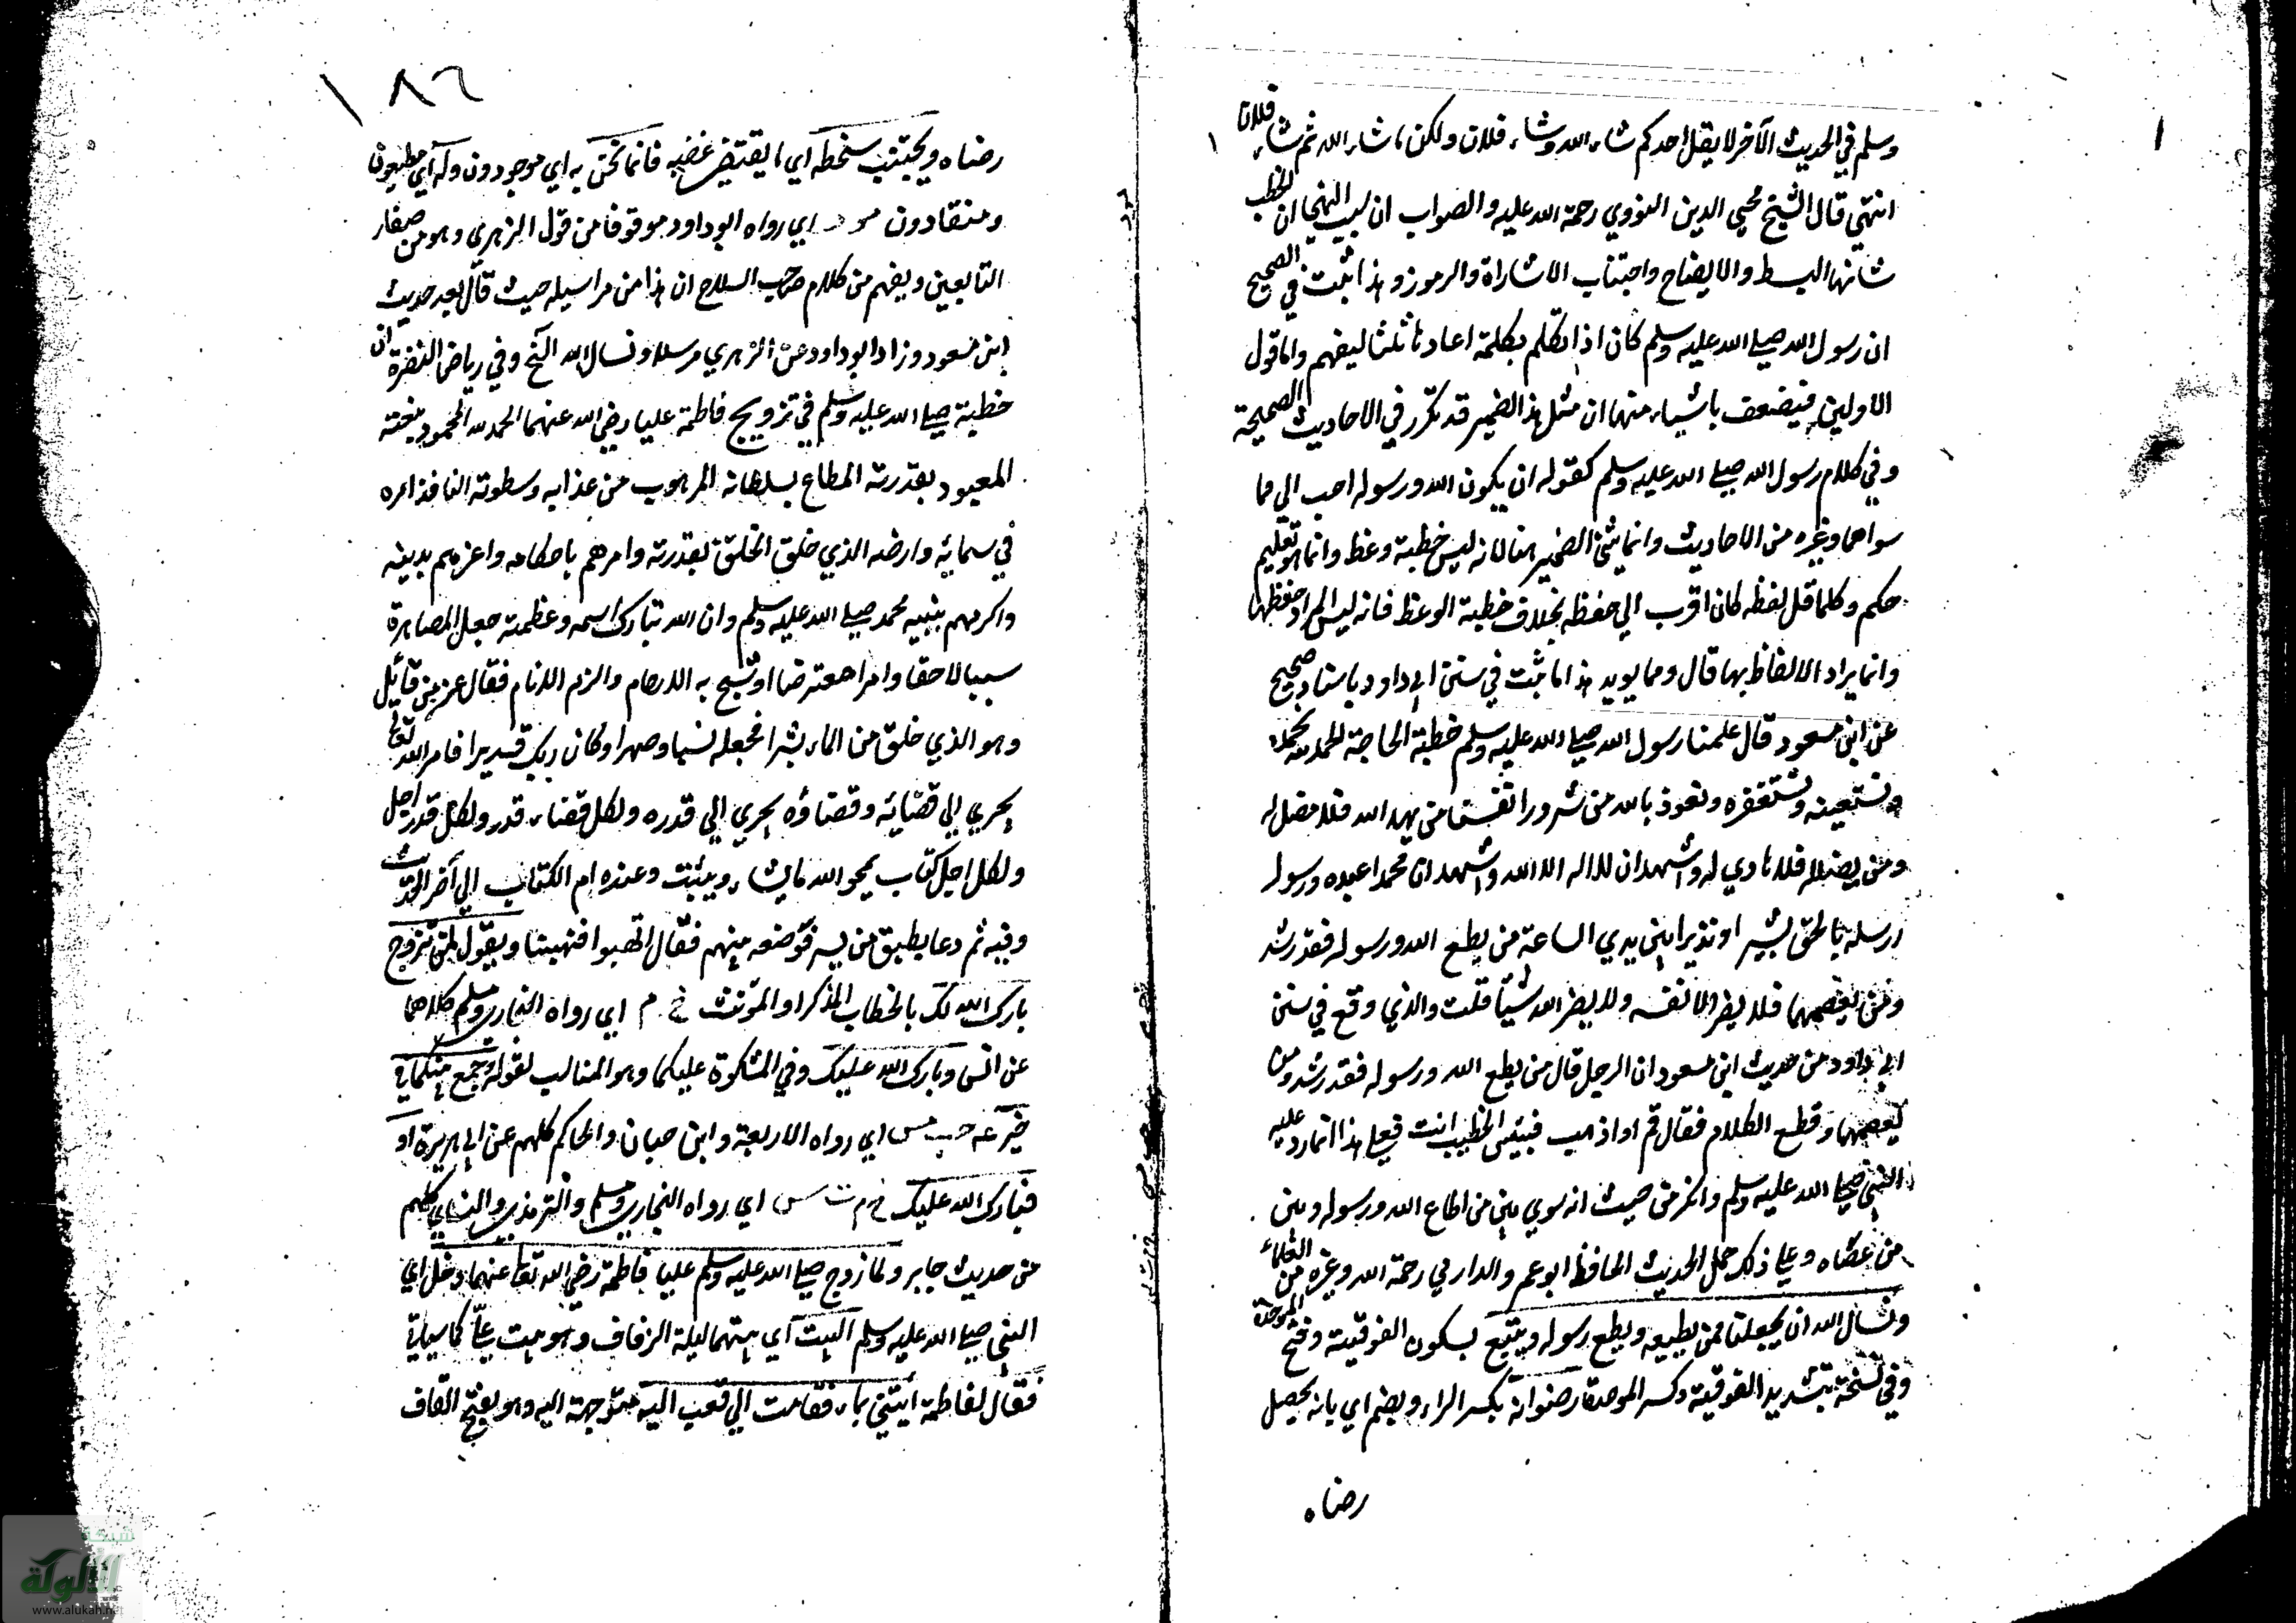 وسلم في الحديث الآخر لا يقل أحدكم شاء الله وشاء فلان ولكن ما شاء الله ثم شاء فلان
انتهى قال الشيخ محيي الدين النووي رحمة الله عليه والصواب ان سبب النهي ان الخطب
شانها البسط والايضاح واجتناب الاشارات والرموز ولهذا ثبت في الصحيح
ان رسول الله صلى الله عليه وسلم كان اذا تكلم بكلمة اعادها ثلثا ليفهم واما قول
الاولين فيضعف باشياء منها ان مثل هذا الضمير قد تكرر في الاحاديث الصحيحة
وفي كلام رسول الله صلى الله عليه وسلم كقوله ان يكون الله ورسوله احب الي مما
سواهما وغيره من الاحاديث وانما ثنى الضمير هنا لانه ليس خطبة وعظ وانما هو تعليم
حكم وكلما قل لفظه كان اقرب الي حفظه بخلاف خطبة الوعظ فانه ليس المراد حفظها
وانما يراد الاتعاظ بها قال ومما يويد هذا ما ثبت في سنن ابي داود باسناد صحيح
عن ابن مسعود قال علمنا رسول الله صلى الله عليه وسلم خطبة الحاجة الحمد لله نحمده
ونستعينه ونستغفره ونعوذ بالله من شرور انفسنا من يهد الله فلا مضل له
ومن يضلله فلا هادي له واشهد ان لا اله الا الله واشهد ان محمدا عبده ورسوله
ارسله بالحق بشيرا ونذيرا بين يدي الساعة من يطع الله ورسوله فقد رشد
ومن يعصهما فلا يضر الا نفسه ولا يضر الله شيئا قلت والذي وقع في سنن
ابي داود من حديث ابن مسعود ان الرجل قال من يطع الله ورسوله فقد رشد ومن
يعصهما وقطع الكلام فقال قم او اذهب فبئس الخطيب انت فعلى هذا انما رد عليه
النبي صلى الله عليه وسلم وانكر من حيث انه سوى بين من اطاع الله ورسوله وبين
من عصاه وعلى ذلك حمل الحديث الحافظ ابو عمرو الداني رحمة الله وغيره من العلماء
ونسال الله ان يجعلنا ممن يطيعه ويطع رسوله ويتبع بسكون الفوقية وفتح الموحدة
وفي نسخة بتشديد الفوقية وكسر الموحدة رضوانه بكسر الراء وبضم اي بانه يحصل
رضاه
١٨٦
رضاه ويجتنب سخطه اي ما يقتضي غضبه فانما نحن به اي موجودون وله اي مطيعون
ومنقادون مو د اي رواه ابوداود موقوفا من قول الزهري وهو من صغار
التابعين ويفهم من كلام صاحب السلاح ان هذا من مراسيله حيث قال بعد حديث
ابن مسعود وزاد ابوداود عن الزهري مرسلا ونسال الله الخ وفي رياض النضرة ان
خطبة صلى الله عليه وسلم في تزويج فاطمة عليا رضي الله عنهما الحمد لله المحمود بنعمته
المعبود بقدرته المطاع بسلطانه المرهوب من عذابه وسطوته النافذ امره
في سمائه وارضه الذي خلق الخلق بقدرته وامرهم باحكامه واعزهم بدينه
واكرمهم بنبيه محمد صلى الله عليه وسلم وان الله تبارك اسمه وعظمته جعل المصاهرة
سببا لاحقا وامرا مفترضا اوشج به الارحام والزم الانام فقال عز من قائل
وهو الذي خلق من الماء بشرا فجعله نسبا وصهرا وكان ربك قديرا فامر الله تعالى
يجري الي قضائه وقضاؤه يجري الي قدره ولكل قضاء قدر ولكل قدر اجل
ولكل اجل كتاب يمحو الله ما يشاء ويثبت وعنده ام الكتاب الي آخر الحديث
وفيه ثم دعا بطبق من بسر فوضعه بينهم فقال انتهبوا فنهبنا ويقول لمن تزوج
بارك الله لك بالخطاب المذكر او المؤنث خ م اي رواه البخاري ومسلم كلاهما
عن انس وبارك الله عليك وفي المشكوة عليكما وهو المناسب لقوله وجمع بينكما في
خير عه حب مس اي رواه الاربعة وابن حبان والحاكم كلهم عن ابي هريرة او
فبارك الله عليك خ م ت س اي رواه البخاري ومسلم والترمذي والنسائي كلهم
من حديث جابر ولما زوج صلى الله عليه وسلم عليا فاطمة رضي الله تعالى عنهما دخل اي
النبي صلى الله عليه وسلم البيت اي بيتهما ليلة الزفاف وهو بيت علي كما سيأتي
فقال لفاطمة أيتني بماء فقامت الي قعب اليه متوجهة اليه وهو بفتح القاف
شبكة
الألوكة
www.alukah.net